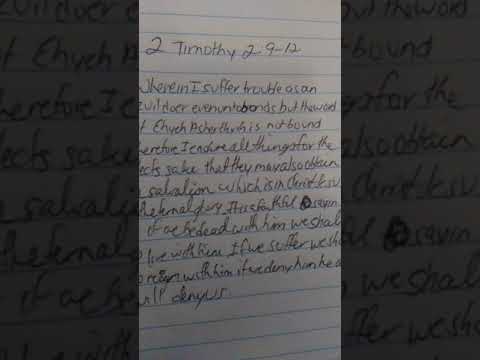 2 Timothy 2:9-12
wherein I suffer trouble as an
evil doer even unto bonds but the word
of Ehyeh Asher Ehyeh is not bound
therefore I endure all things for the
elects sake that they may also obtain
salvation which is in Christ
eternal glory It is a faithful saying
if we be dead with him we shall
live with him If we suffer we sha
reign with him if we deny him he a
will deny us.